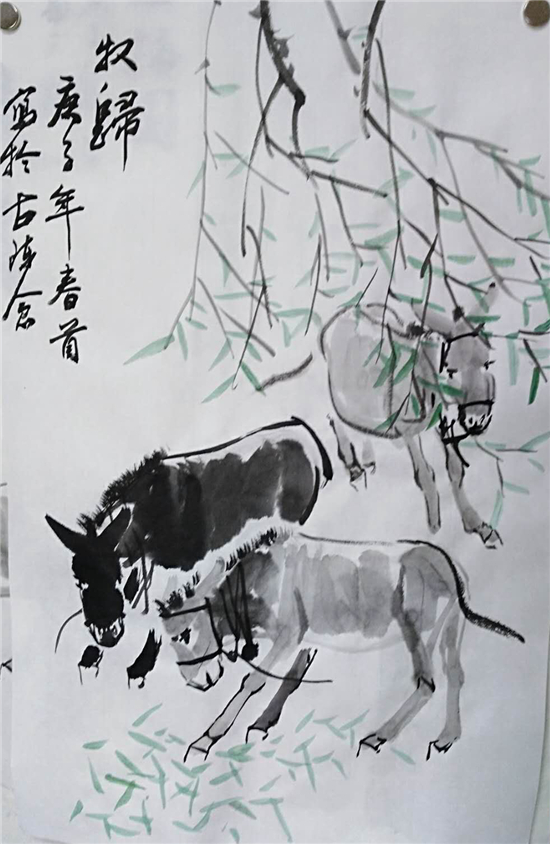 牧歸
庚子年春首
寫於古陳倉